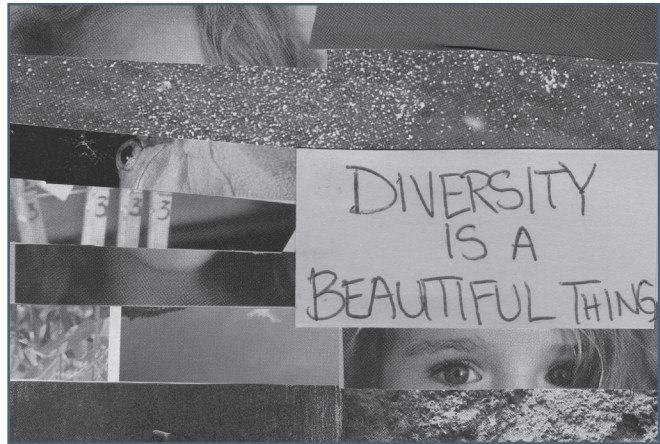 3 3 3 3
DIVERSITY
IS A
BEAUTIFUL THING